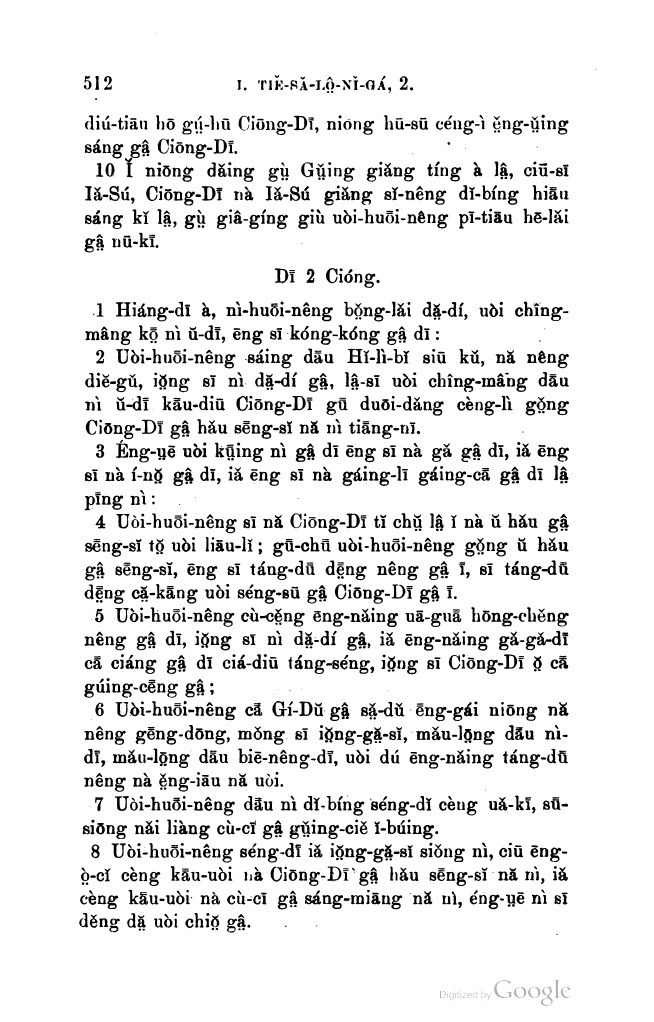 512 I. TIĔ-SĂ-LÔ̤-NĬ-GÁ, 2.
diú-tiāu hō gṳ́-hū Ciōng-Dī, niōng hū-sū céng-ì ĕ̤ng-ṳ̆ing
sáng gâ̤ Ciōng-Dī.
10 Ī niōng dăing gṳ̀ Gṳ̆ing giăng tíng à lâ̤, ciū-sī
Iă-Sú, Ciōng-Dī nà Iă-Sú giăng sĭ-nêng dĭ-bíng hiāu
sáng kĭ lâ̤, gṳ̀ giâ-gíng giù uòi-huōi-nêng pī-tiāu hē-lăi
gâ̤ nū-kī.
Dī 2 Cióng.
1 Hiáng-dī à, nì-huōi-nêng bŏ̤ng-lăi dă̤-dí, uòi chîng-
mâng kō̤ nì ŭ-dī, ēng sī kóng-kóng gâ̤ dī :
2 Uòi-huōi-nêng sáing dāu Hĭ-lì-bĭ siū kŭ, nă nêng
diĕ-gŭ, iŏ̤ng sī nì dă̤-dí gâ̤, lâ̤-sī uòi chîng-mâng dāu
nì ŭ-dī kāu-diū Ciōng-Dī gū duōi-dăng cèng-lì gŏ̤ng
Ciōng-Dī gâ̤ hău sēng-sĭ nă nì tiāng-nī.
3 Éng-ṳē uòi kṳ̄ing nì gâ̤ dī ēng sī nà gă gâ̤ dī, iă ēng
sī nà í-nŏ̤ gâ̤ dī, iă ēng sī nà gáing-lī gáing-cā gâ̤ dī lâ̤
pīng nì :
4 Uòi-huōi-nêng sī nă Ciōng-Dī tĭ chṳ̆ lâ̤ I nà ŭ hău gâ̤
sēng-sĭ tŏ̤ uòi liāu-lĭ ; gū-chū uòi-huōi-nêng gŏ̤ng ŭ hău
gâ̤ sēng-sĭ, ēng sī táng-dū dē̤ng nêng gâ̤ ī, sī táng-dū
dē̤ng că̤-kāng uòi séng-sū gâ̤ Ciōng-Dī gâ̤ ī.
5 Uòi-huōi-nêng cù-cĕ̤ng ēng-năing uā-guā hōng-chĕng
nêng gâ̤ dī, iŏ̤ng sī nì dă̤-dí gâ̤, iă ēng-năing gă-gă-dī
cā ciáng gâ̤ dī ciá-diū táng-séng, iŏ̤ng sī Ciōng-Dī ŏ̤ cā
gúing-cēng gâ̤ ;
6 Uòi-huōi-nêng cā Gí-Dŭ gâ̤ să̤-dŭ ēng-gái niōng nă
nêng gēng-dōng, mŏng sī iŏ̤ng-gă̤-sĭ, mău-lō̤ng dāu nì-
dī, mău-lō̤ng dāu biē-nêng-dī, uòi dú ēng-năing táng-dū
nêng nà ĕ̤ng-iāu nă uòi.
7 Uòi-huōi-nêng dāu nì dĭ-bíng séng-dī cèng uă-kī, sū-
siōng năi liàng cù-cī gâ̤ gṳ̆ing-ciĕ ī-búing.
8 Uòi-huōi-nêng séng-dī iă iŏ̤ng-gă̤-sĭ siŏng nì, ciū ēng-
ò̤-cī cèng kāu-uòi nà Ciōng-Dī gâ̤ hău sēng-sĭ nă nì, iă
cèng kāu-uòi nà cù-cī gâ̤ sáng-miāng nă nì, éng-ṳē nì sī
dĕng dă̤ uòi chiŏ̤ gâ̤.
Digitized by Google